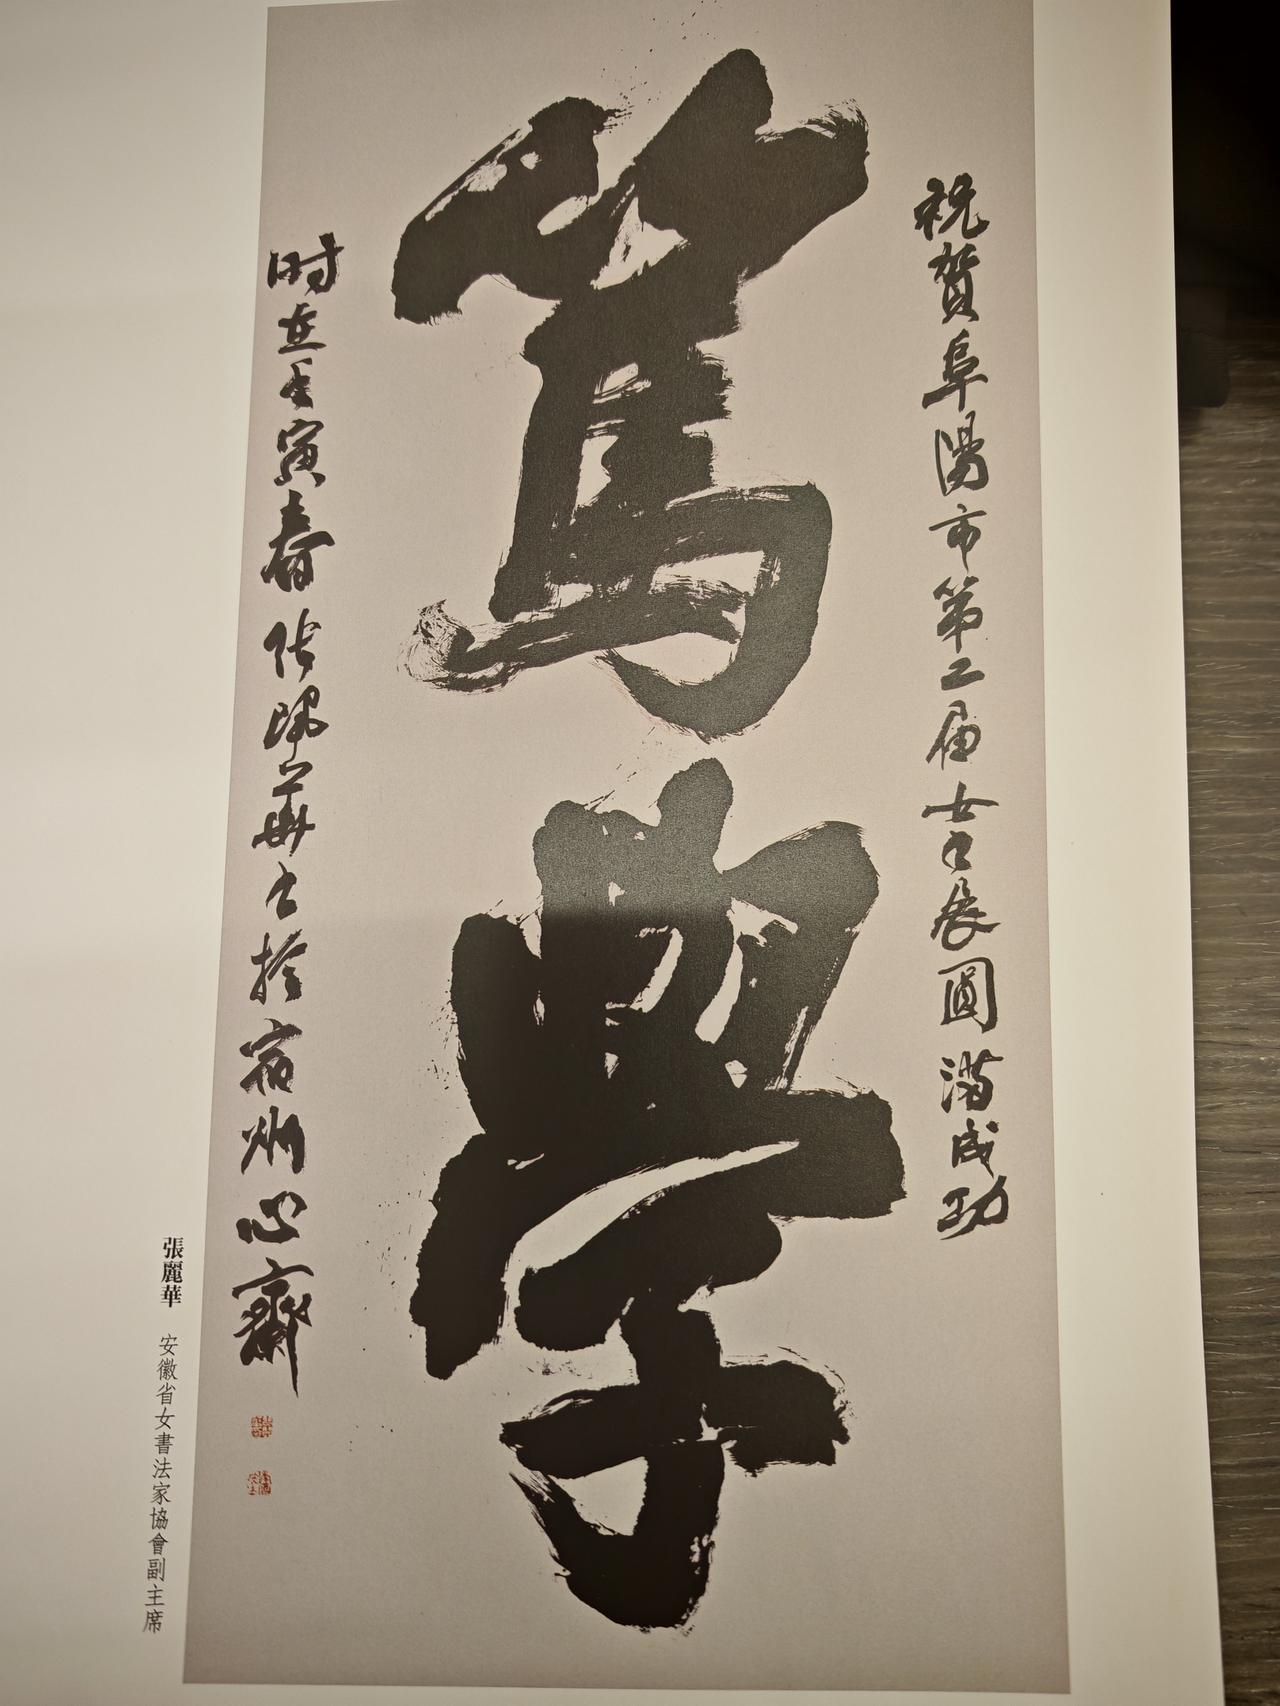 祝賀阜陽市第二届女书展圓滿成功
篤學
时在壬寅春张麗華书於宿州心齋
張麗華 安徽省女書法家協會副主席